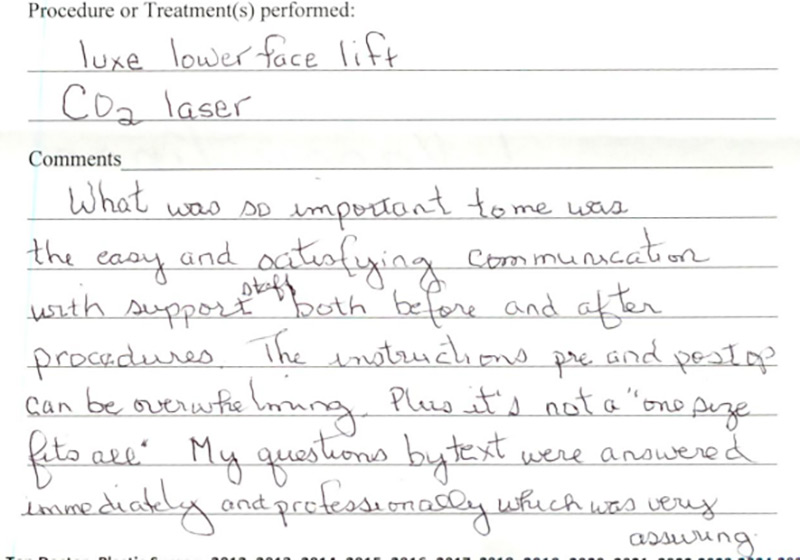 Procedure or Treatment(s) performed:
luxe lower face lift
CO2 laser
Comments
What was so important to me was
the easy and satisfying communication
with support staff both before and after
procedures. The instructions pre and post op
can be overwhelming. Plus it's not a "one size
fits all" My questions by text were answered
immediately and professionally which was very
assuring.